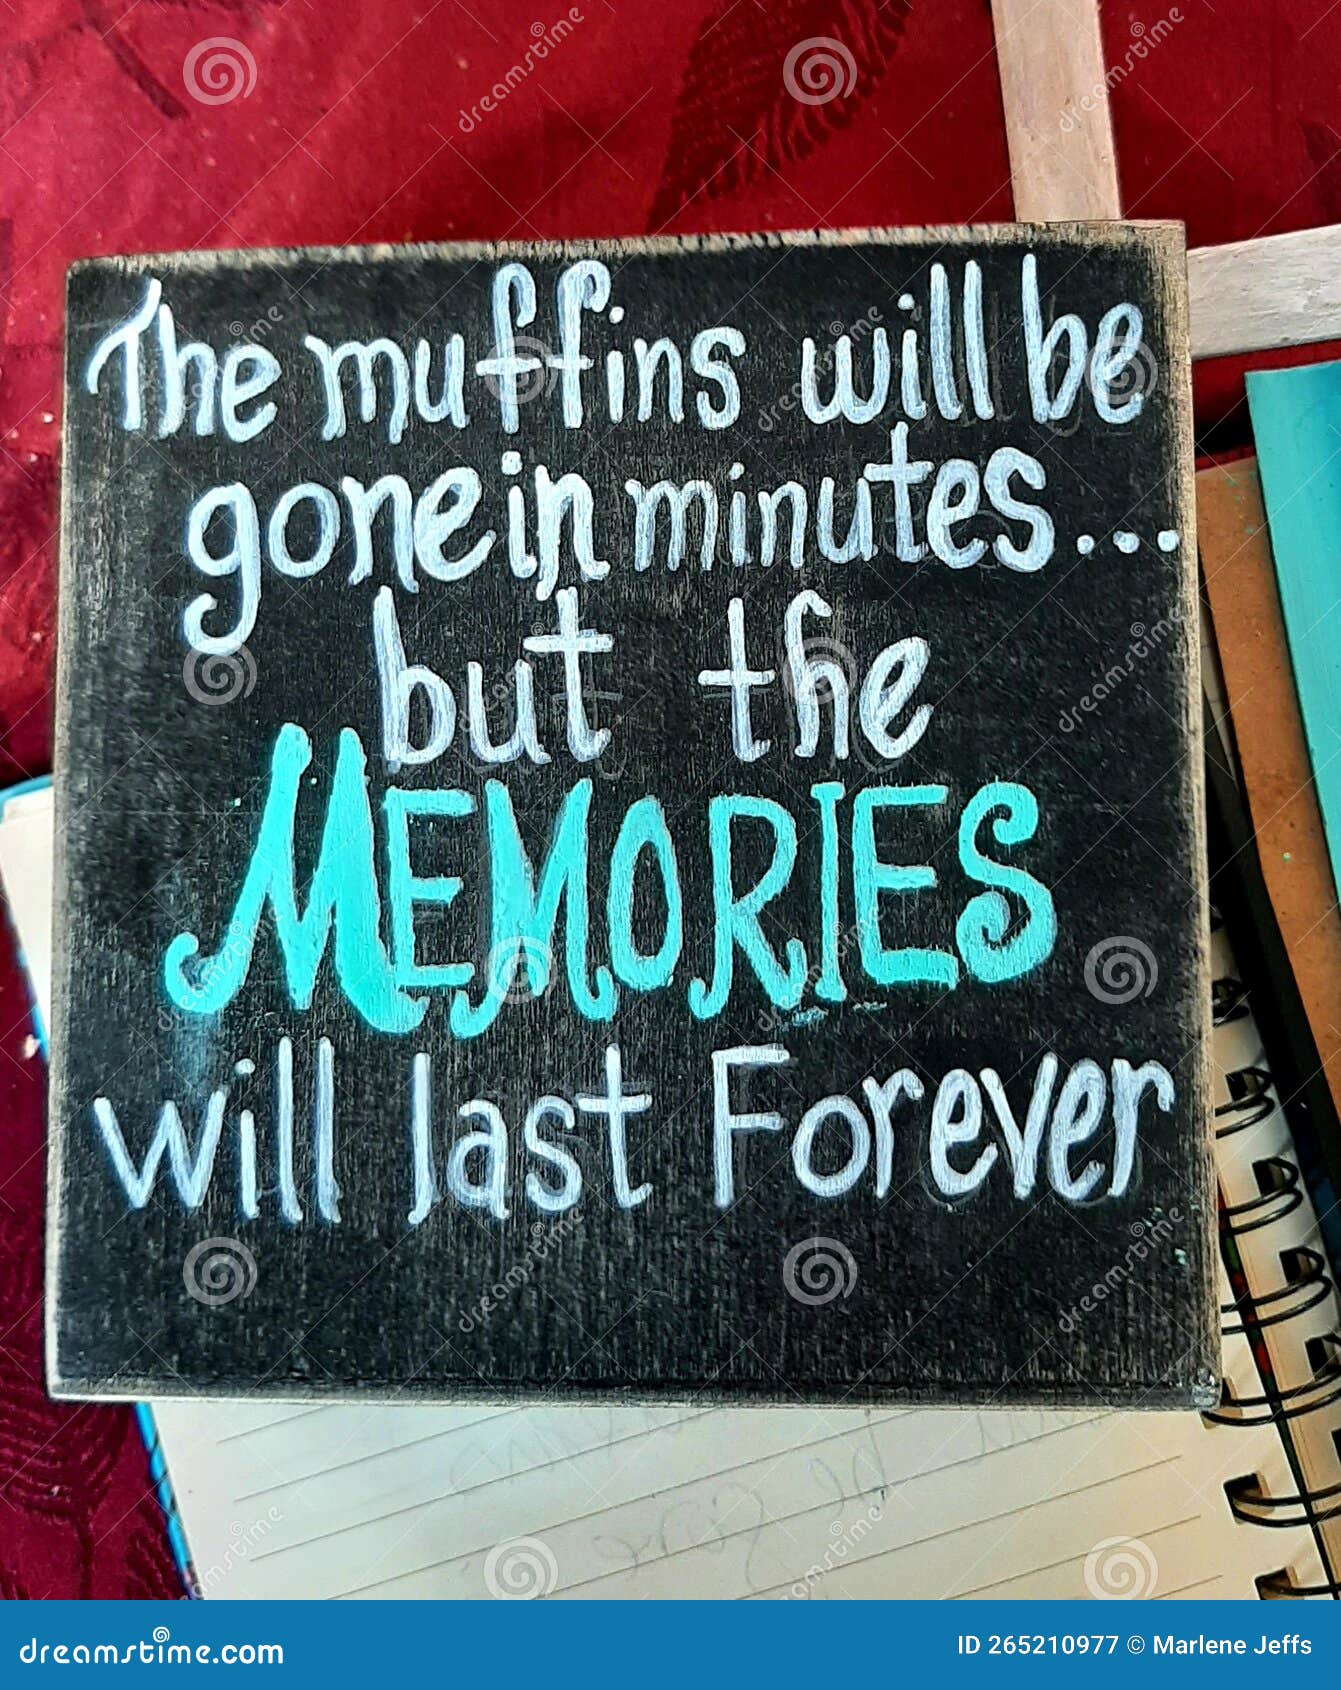 The muffins will be
gone in minutes...
but the
MEMORIES
will last Forever
dreamstime.com
ID 265210977 © Marlene Jeffs